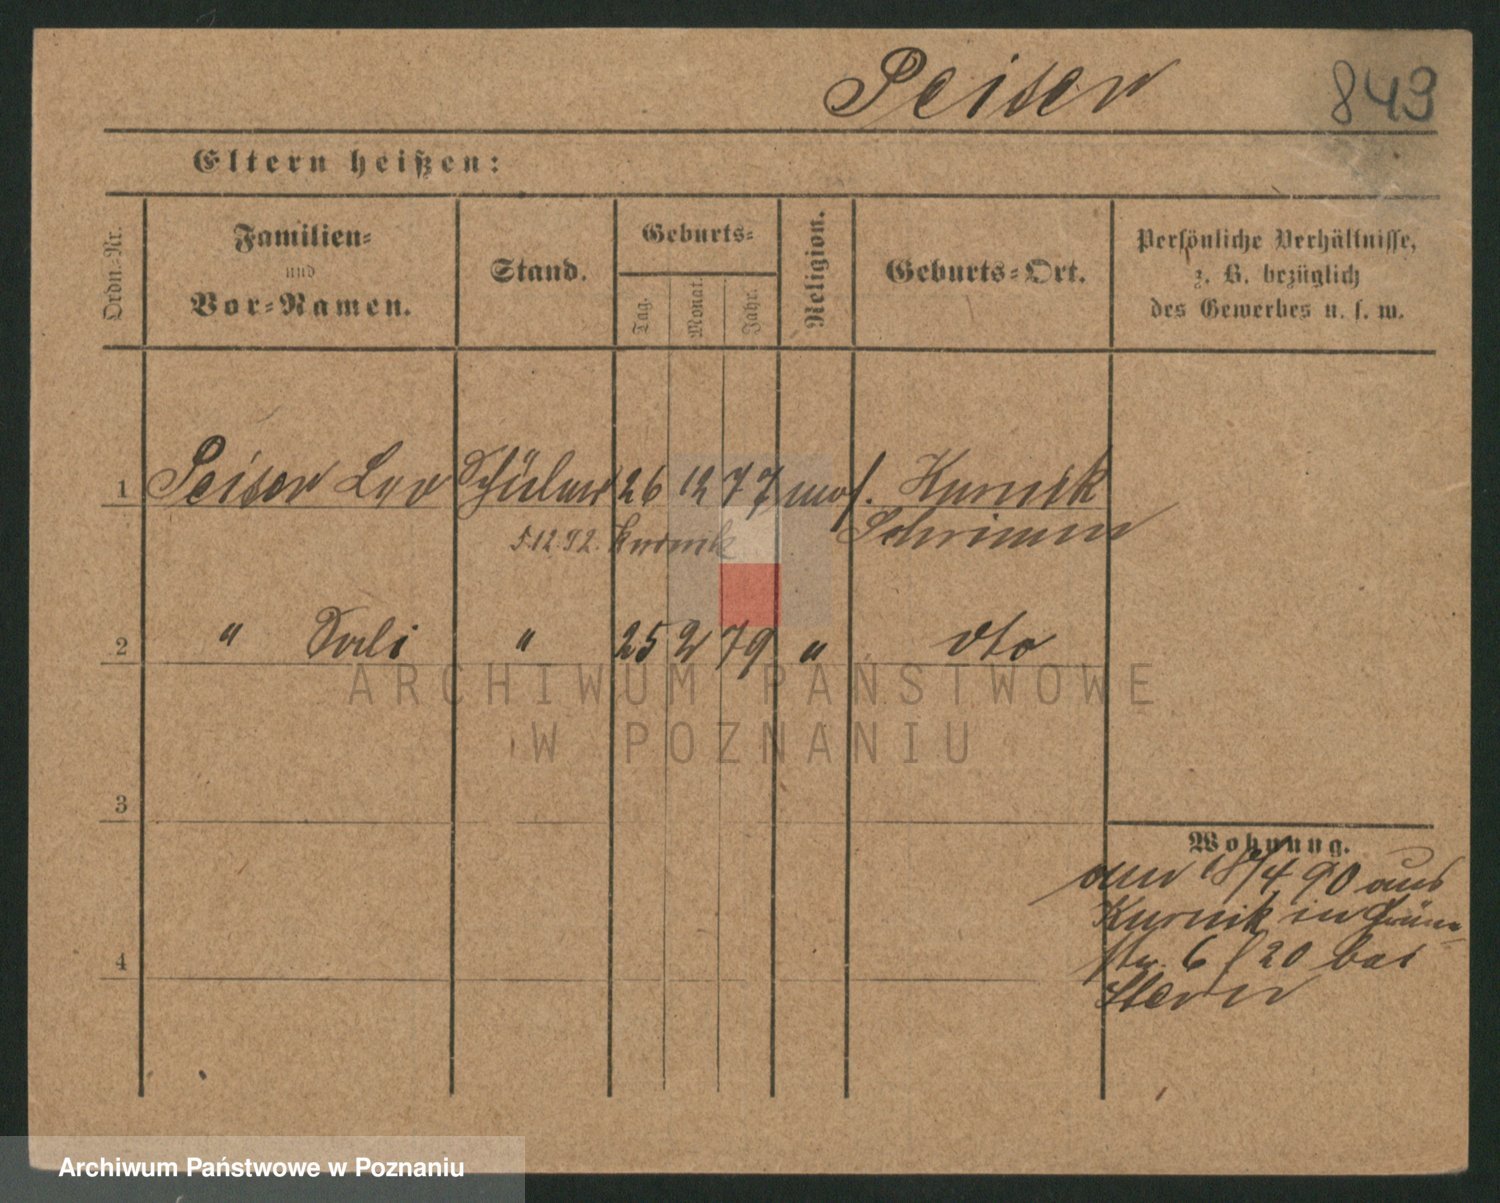 Peiser 843
Eltern heißen:
Ordn.-Nr.
Familien-
und
Vor-Namen.
Stand.
Geburts-
Tag.
Monat.
Jahr.
Religion.
Geburts-Ort.
Persönliche Verhältnisse,
z. B. bezüglich
des Gewerbes u. s. w.
1 Peiser Leo Schüler 26 12 77 mos. Kurnik
Schrimm
5.12.92. Kurnik
2 " " 25 2 79 " dto
ARCHIWUM PAŃSTWOWE
W POZNANIU
3
4
Wohnung.
18/4 90 aus
Kurnik in Grün-
str. 6 / 20 bei
Stern
Archiwum Państwowe w Poznaniu